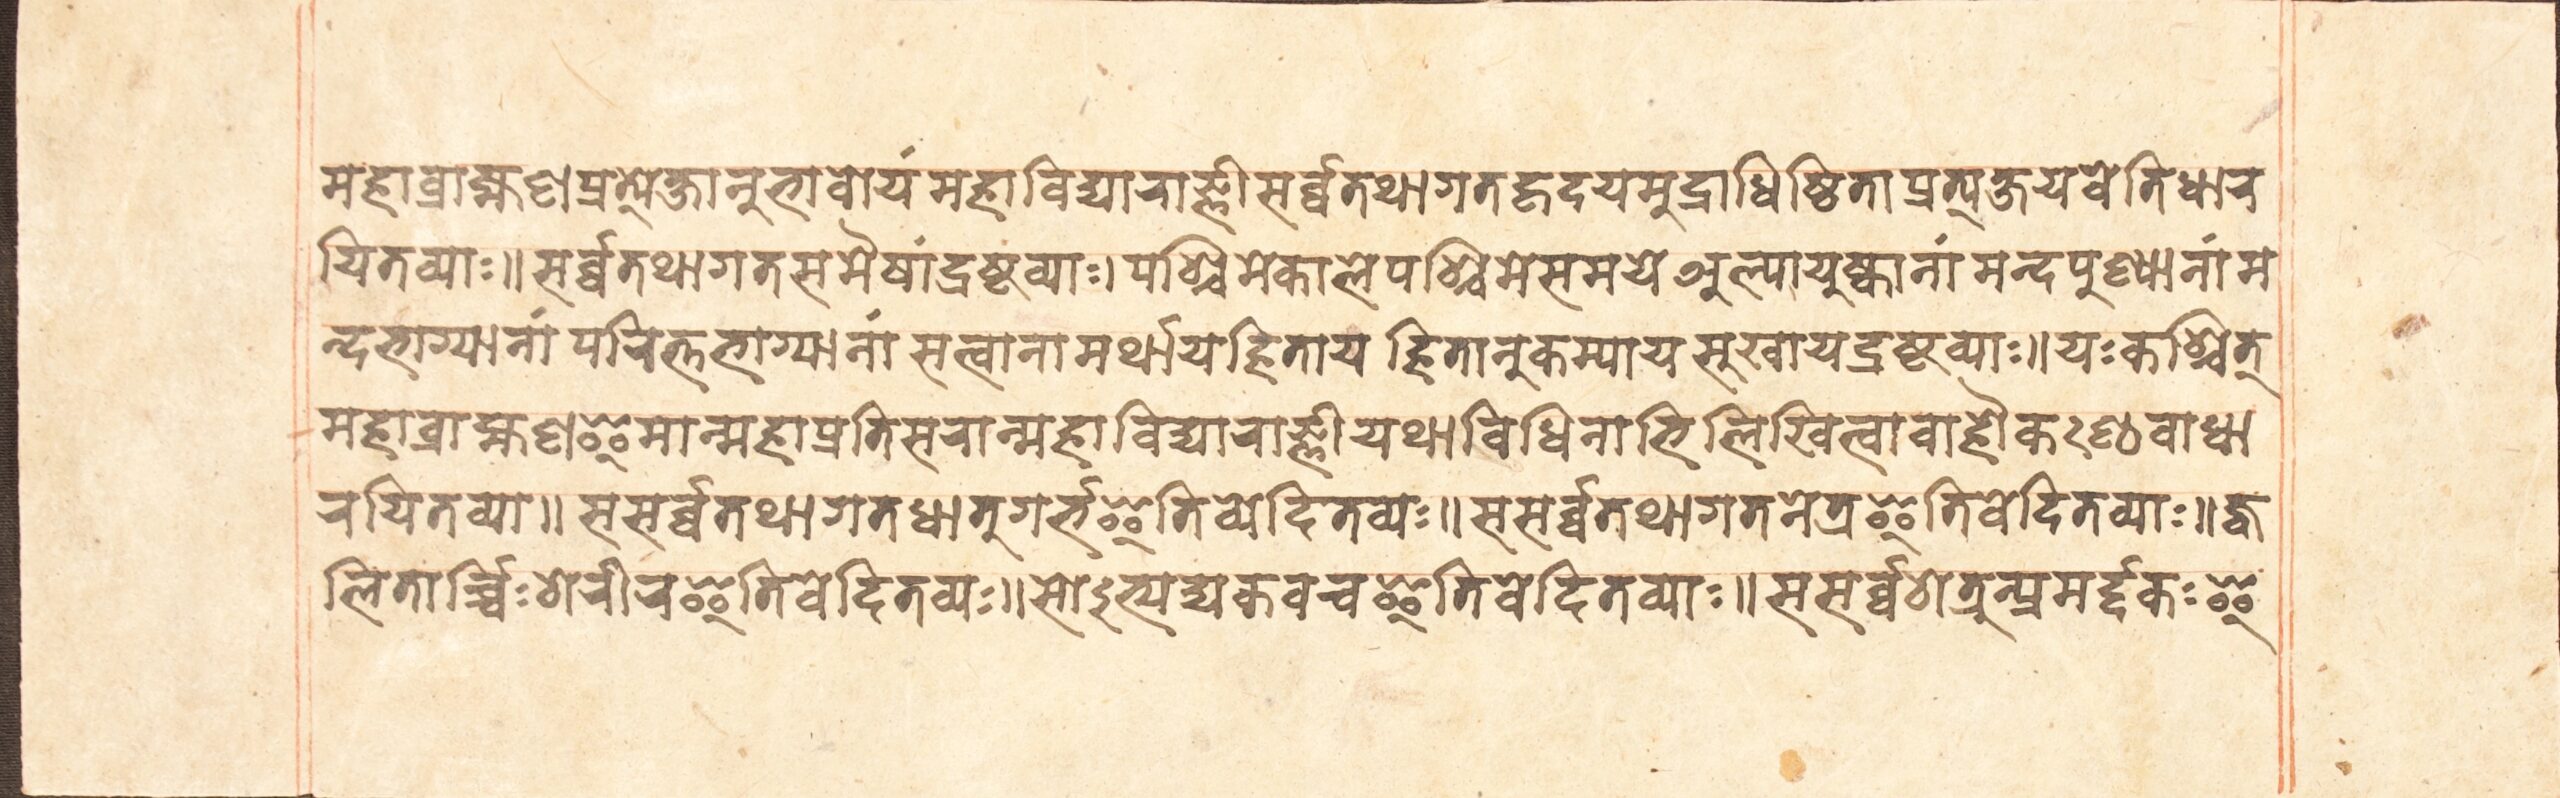 महाब्राह्मणप्रत्येक्षानुभावोयं महाविद्याराज्ञीसर्व्वतथागतहृदयमुद्राधिष्ठिताप्रत्यक्षयवेतिधार
यितव्याः॥सर्व्वतथागतसमैषांद्रष्टव्याः। पश्चिमेकालेपश्चिमेसमये अल्पायुष्कानां मन्दपुण्यानां म
न्दभाग्यानां परित्तभाग्यानां सत्वानामर्थायहिताय हितानुकम्पाय सुखायद्रष्टव्याः॥यःकश्चित्
महाब्राह्मणइमान्महाप्रतिसरान्महाविद्याराज्ञीयथाविधिनाभिलिखित्वावाहौकण्ठवाधा
रयितव्या॥ ससर्व्वतथागतधातुगर्भइतिवेदितव्यः॥ससर्व्वतथागतनेत्रइतिवेदितव्याः॥ज्व
लितार्च्चिःशरीरइतिवेदितव्यः॥सोऽभ्यद्यकवचइतिवेदितव्याः॥ससर्व्वशत्रुन्प्रमर्द्दकःइ